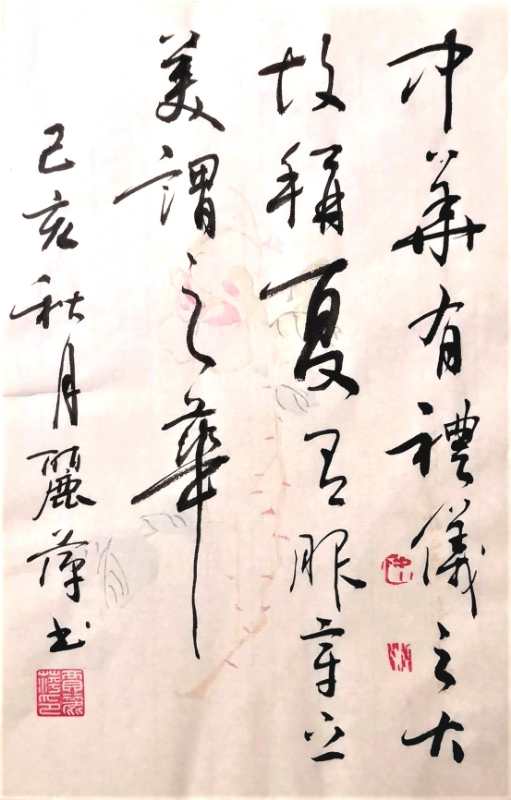 中華有禮儀之大
故稱夏有服章之
美謂之華
己亥秋月麗萍书